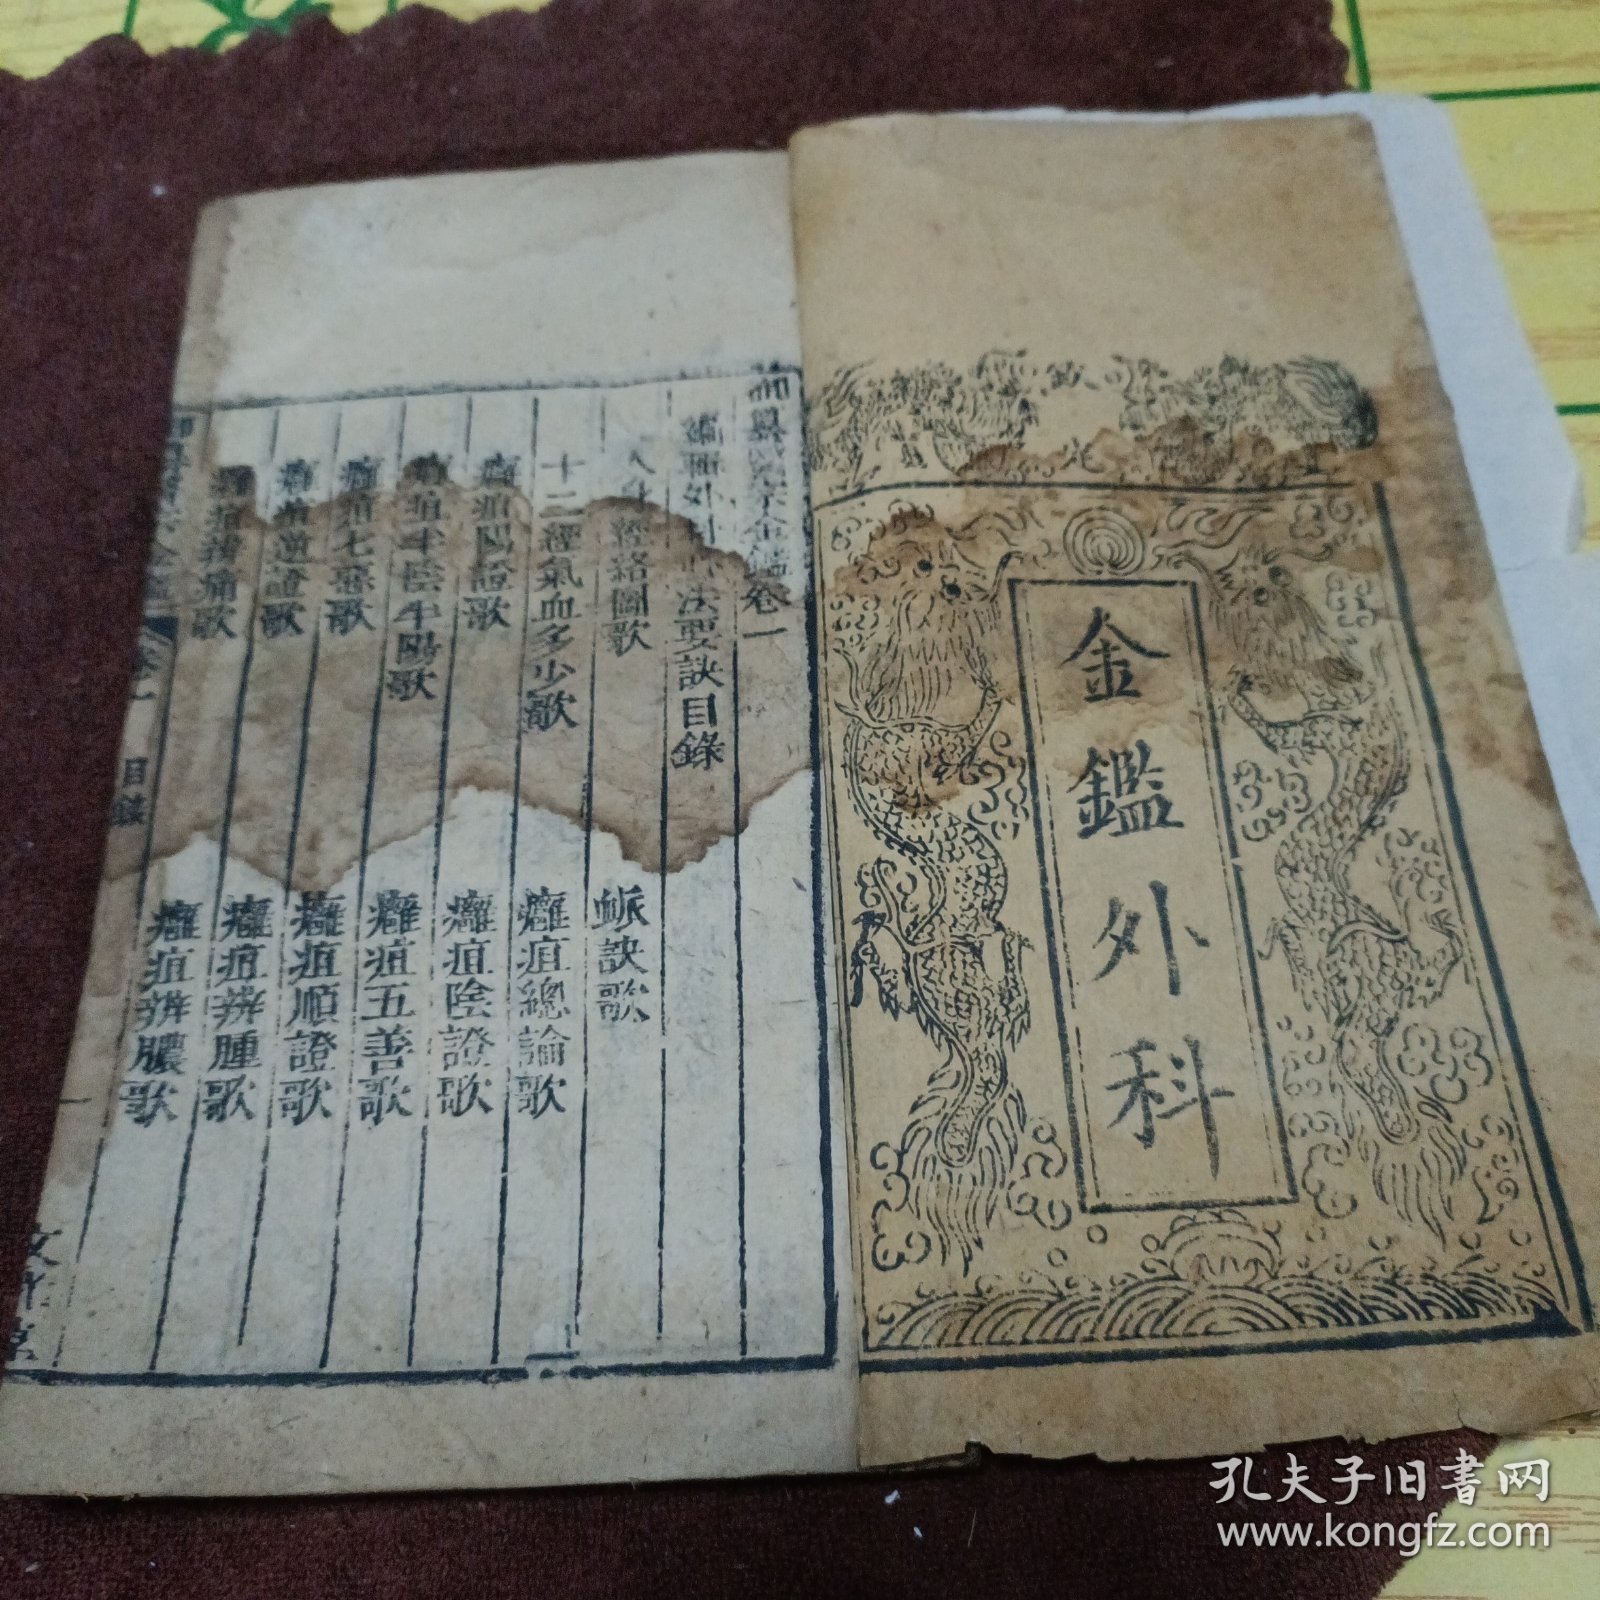 金鑑外科
御纂醫宗金鑑卷一
編輯外科心法要訣目錄
十二經氣血多少歌
脈訣歌
癰疽總論歌
癰疽陽證歌
癰疽陰證歌
癰疽半陰半陽歌
癰疽五善歌
癰疽七惡歌
癰疽順證歌
癰疽逆證歌
癰疽辨腫歌
癰疽辨痛歌
癰疽辨膿歌
卷一 目錄 一
孔夫子旧书网
www.kongfz.com